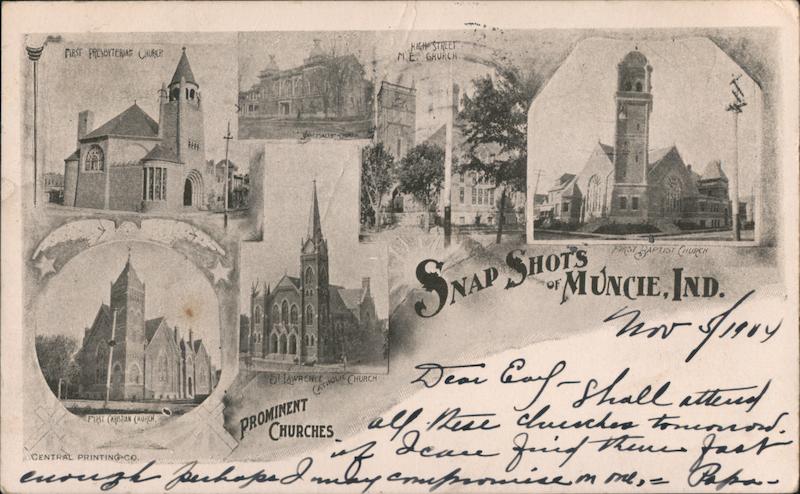 FIRST PRESBYTERIAN CHURCH
HIGH STREET
M.E. CHURCH
UNIVERSALIST CHURCH
FIRST BAPTIST CHURCH
SNAP SHOTS
OF MUNCIE, IND.
ST. LAWRENCE
CATHOLIC CHURCH
FIRST CHRISTIAN CHURCH.
PROMINENT
CHURCHES
CENTRAL PRINTING-CO.
Nov 5/1904
Dear Earl - Shall attend
all these churches tomorrow.
if I can find them fast
enough perhaps I may compromise on one, = Papa -